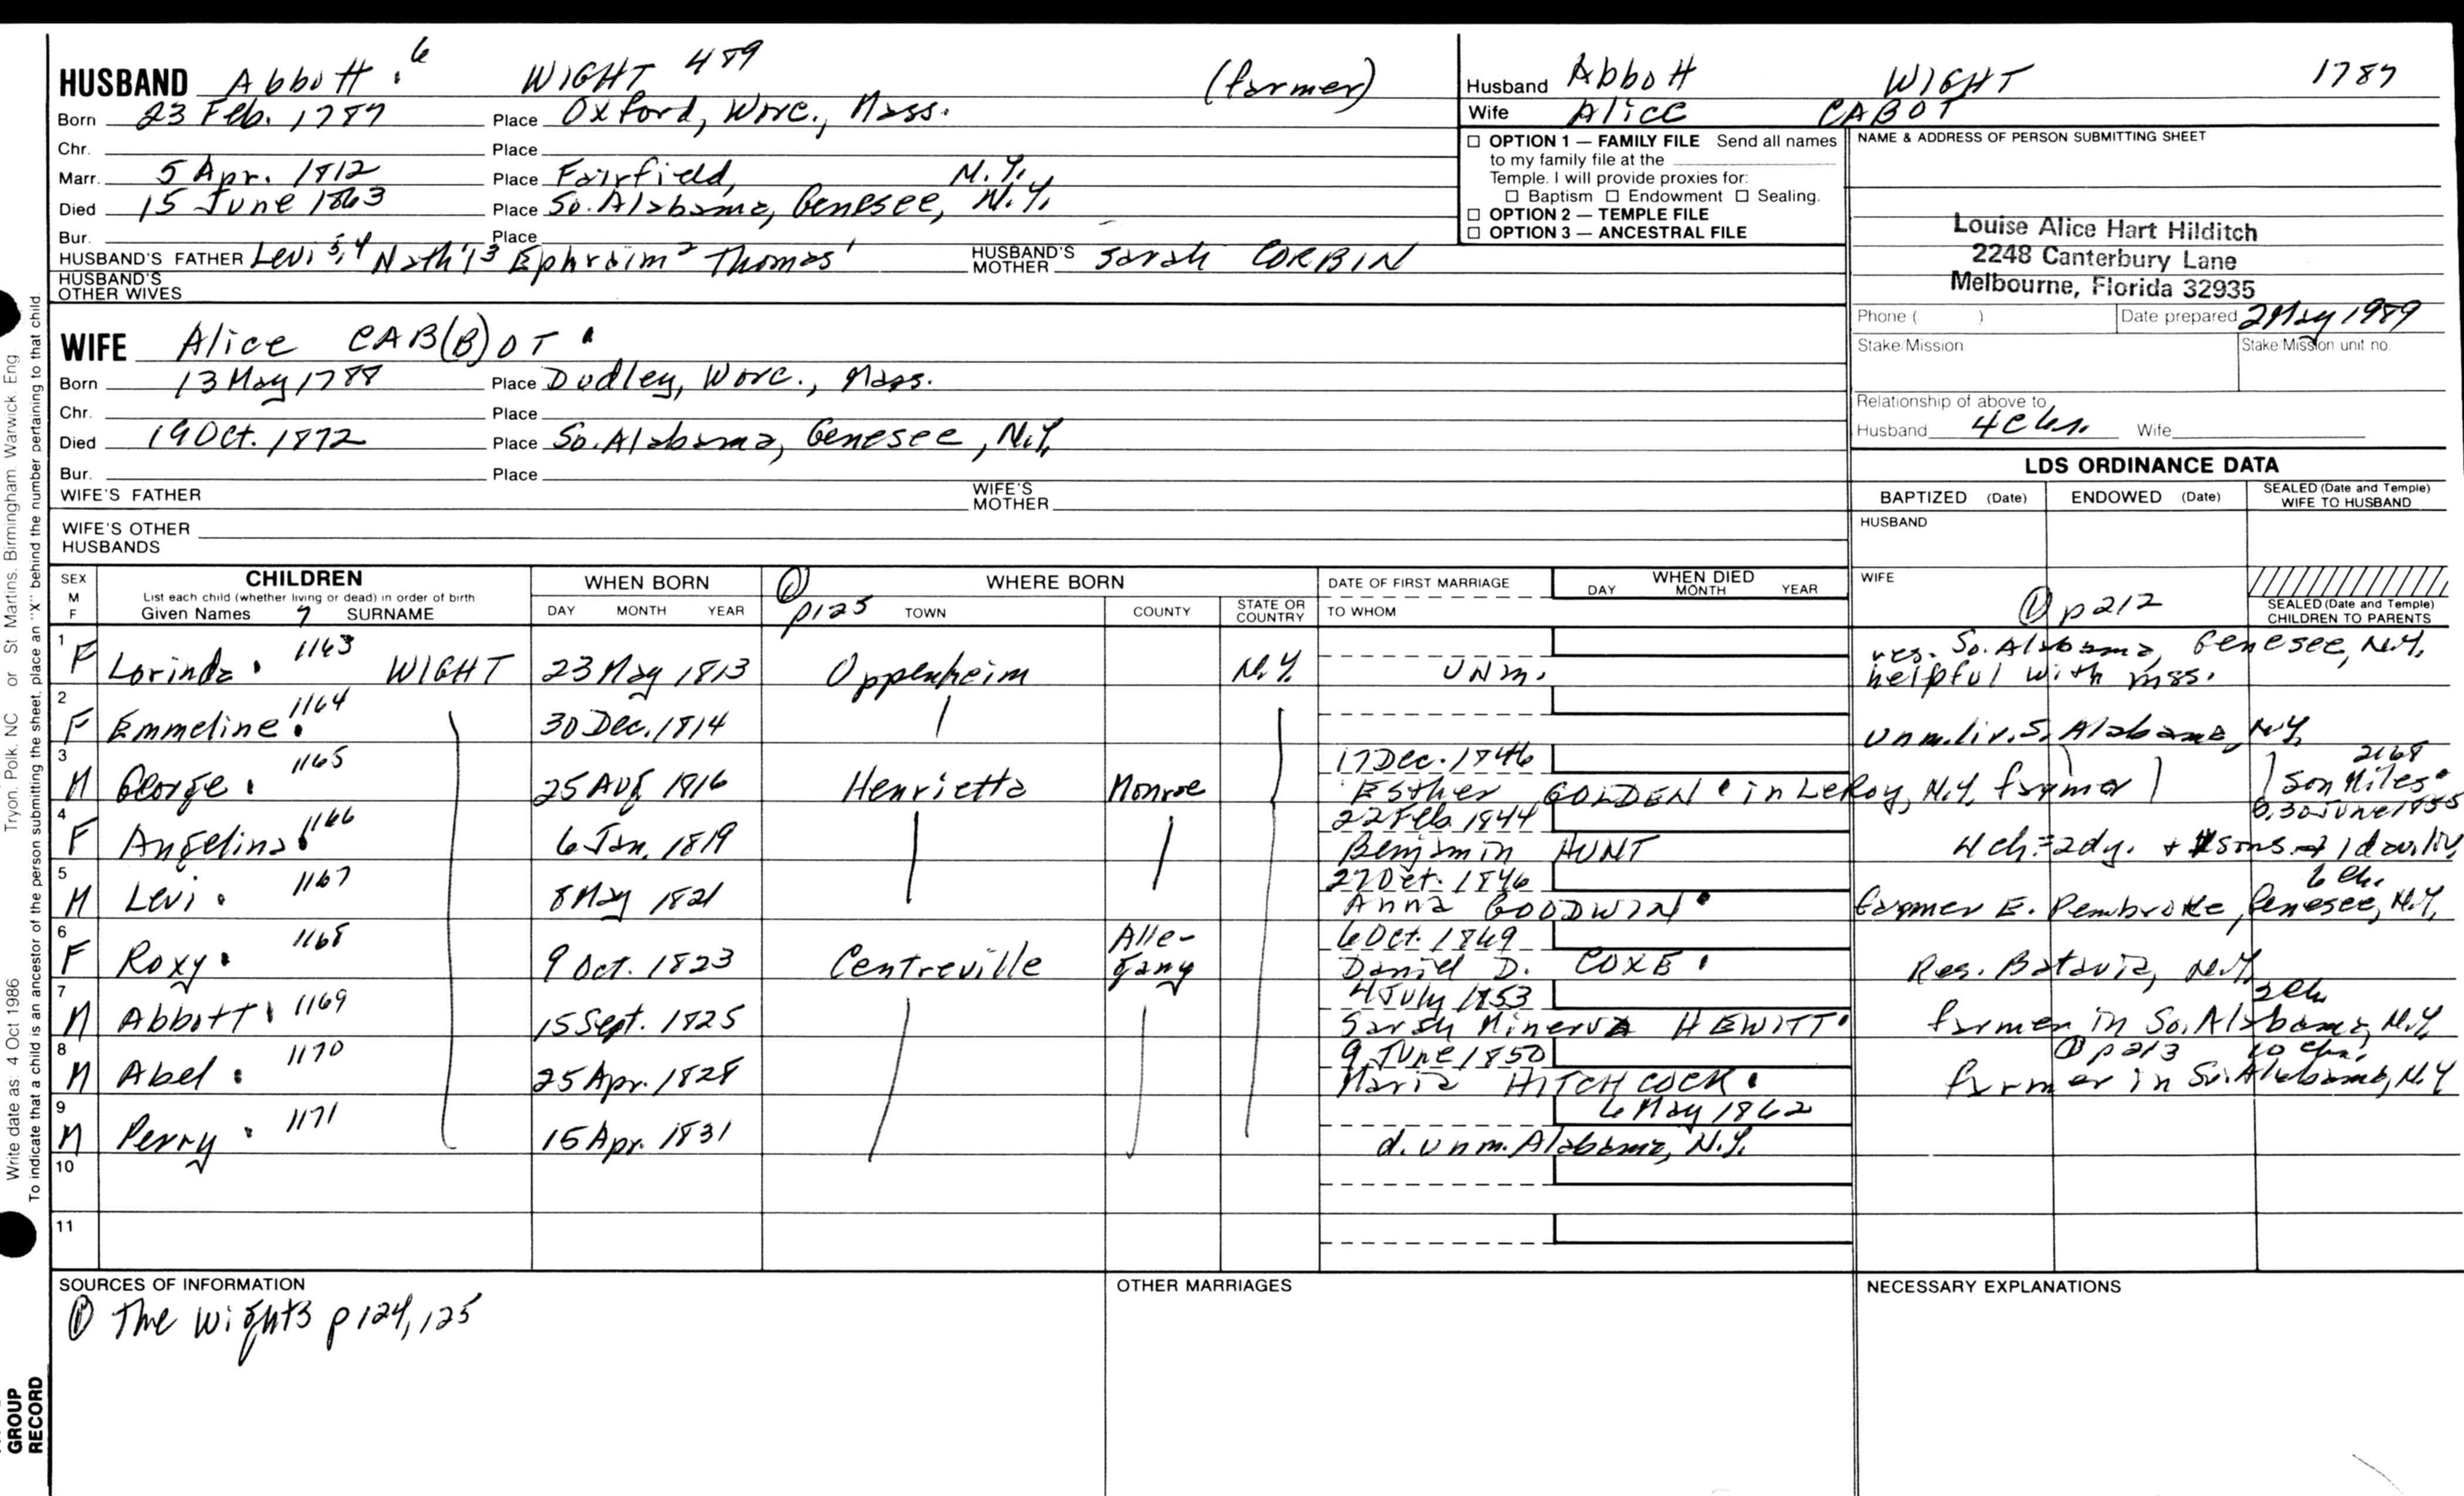 HUSBAND Abbott . 6 WIGHT 489 (farmer)
Born 23 Feb. 1787 Place Oxford, Worc., Mass.
Chr. Place
Marr. 5 Apr. 1812 Place Fairfield, N.Y.
Died 15 June 1863 Place So. Alabama, Genesee, N.Y.
Bur. Place
HUSBAND'S FATHER Levi 5,4 Nath'l 3 Ephraim 2 Thomas 1 HUSBAND'S MOTHER Sarah CORBIN
HUSBAND'S OTHER WIVES
Husband Abbott WIGHT 1787
Wife Alice CABOT
☐ OPTION 1 — FAMILY FILE Send all names
to my family file at the
Temple. I will provide proxies for:
☐ Baptism ☐ Endowment ☐ Sealing.
☐ OPTION 2 — TEMPLE FILE
☐ OPTION 3 — ANCESTRAL FILE
NAME & ADDRESS OF PERSON SUBMITTING SHEET
Louise Alice Hart Hilditch
2248 Canterbury Lane
Melbourne, Florida 32935
Phone ( ) Date prepared 2 May 1989
Stake/Mission Stake/Mission unit no.
Relationship of above to
Husband 4c Wife
WIFE Alice CAB(B)OT .
Born 13 May 1788 Place Dudley, Worc., Mass.
Chr. Place
Died 19 Oct. 1872 Place So. Alabama, Genesee, N.Y.
Bur. Place
WIFE'S FATHER WIFE'S MOTHER
WIFE'S OTHER HUSBANDS
LDS ORDINANCE DATA
BAPTIZED (Date) ENDOWED (Date) SEALED (Date and Temple) WIFE TO HUSBAND
HUSBAND
WIFE
① p 212
SEALED (Date and Temple) CHILDREN TO PARENTS
SEX M F CHILDREN List each child (whether living or dead) in order of birth Given Names 7 SURNAME
WHEN BORN DAY MONTH YEAR
① p125 WHERE BORN TOWN COUNTY STATE OR COUNTRY
DATE OF FIRST MARRIAGE TO WHOM
WHEN DIED DAY MONTH YEAR
1 F Lorinda . 1163 WIGHT 23 May 1813 Oppenheim N.Y. UNM. res. So. Alabama, Genesee, N.Y.
helpful with mss.
2 F Emmeline . 1164 30 Dec. 1814 unm. liv. S. Alabama, N.Y.
3 M George . 1165 25 Aug 1816 Henrietta Monroe 17 Dec. 1846
Esther GOLDEN . in LeRoy, N.Y. farmer son Miles . 2168
b. 30 June 1855
4 F Angelina . 1166 6 Jan. 1819 22 Feb. 1844
Benjamin HUNT 4 ch = 2 dy. + sons
5 M Levi . 1167 8 May 1821 27 Oct. 1846
Anna GOODWIN . 6 ch.
farmer E. Pembroke, Genesee, N.Y.
6 F Roxy . 1168 9 Oct. 1823 Centreville Allegany 6 Oct. 1849
Daniel D. COXE . Res. Batavia, N.Y.
7 M Abbott . 1169 15 Sept. 1825 4 July 1853
Sarah Minerva HEWITT . 2 ch
farmer in So. Alabama, N.Y.
8 M Abel . 1170 25 Apr. 1828 9 June 1850
Maria HITCHCOCK . ① p 213
farmer in So. Alabama, N.Y.
9 M Perry . 1171 15 Apr. 1831 6 May 1862
d. unm. Alabama, N.Y.
10
11
SOURCES OF INFORMATION
① The Wights p124, 125
OTHER MARRIAGES
NECESSARY EXPLANATIONS
Tryon, Polk, NC or St Martins, Birmingham, Warwick, Eng
Write date as: 4 Oct 1986
To indicate that a child is an ancestor of the person submitting the sheet, place an "X" behind the number pertaining to that child.
GROUP
RECORD